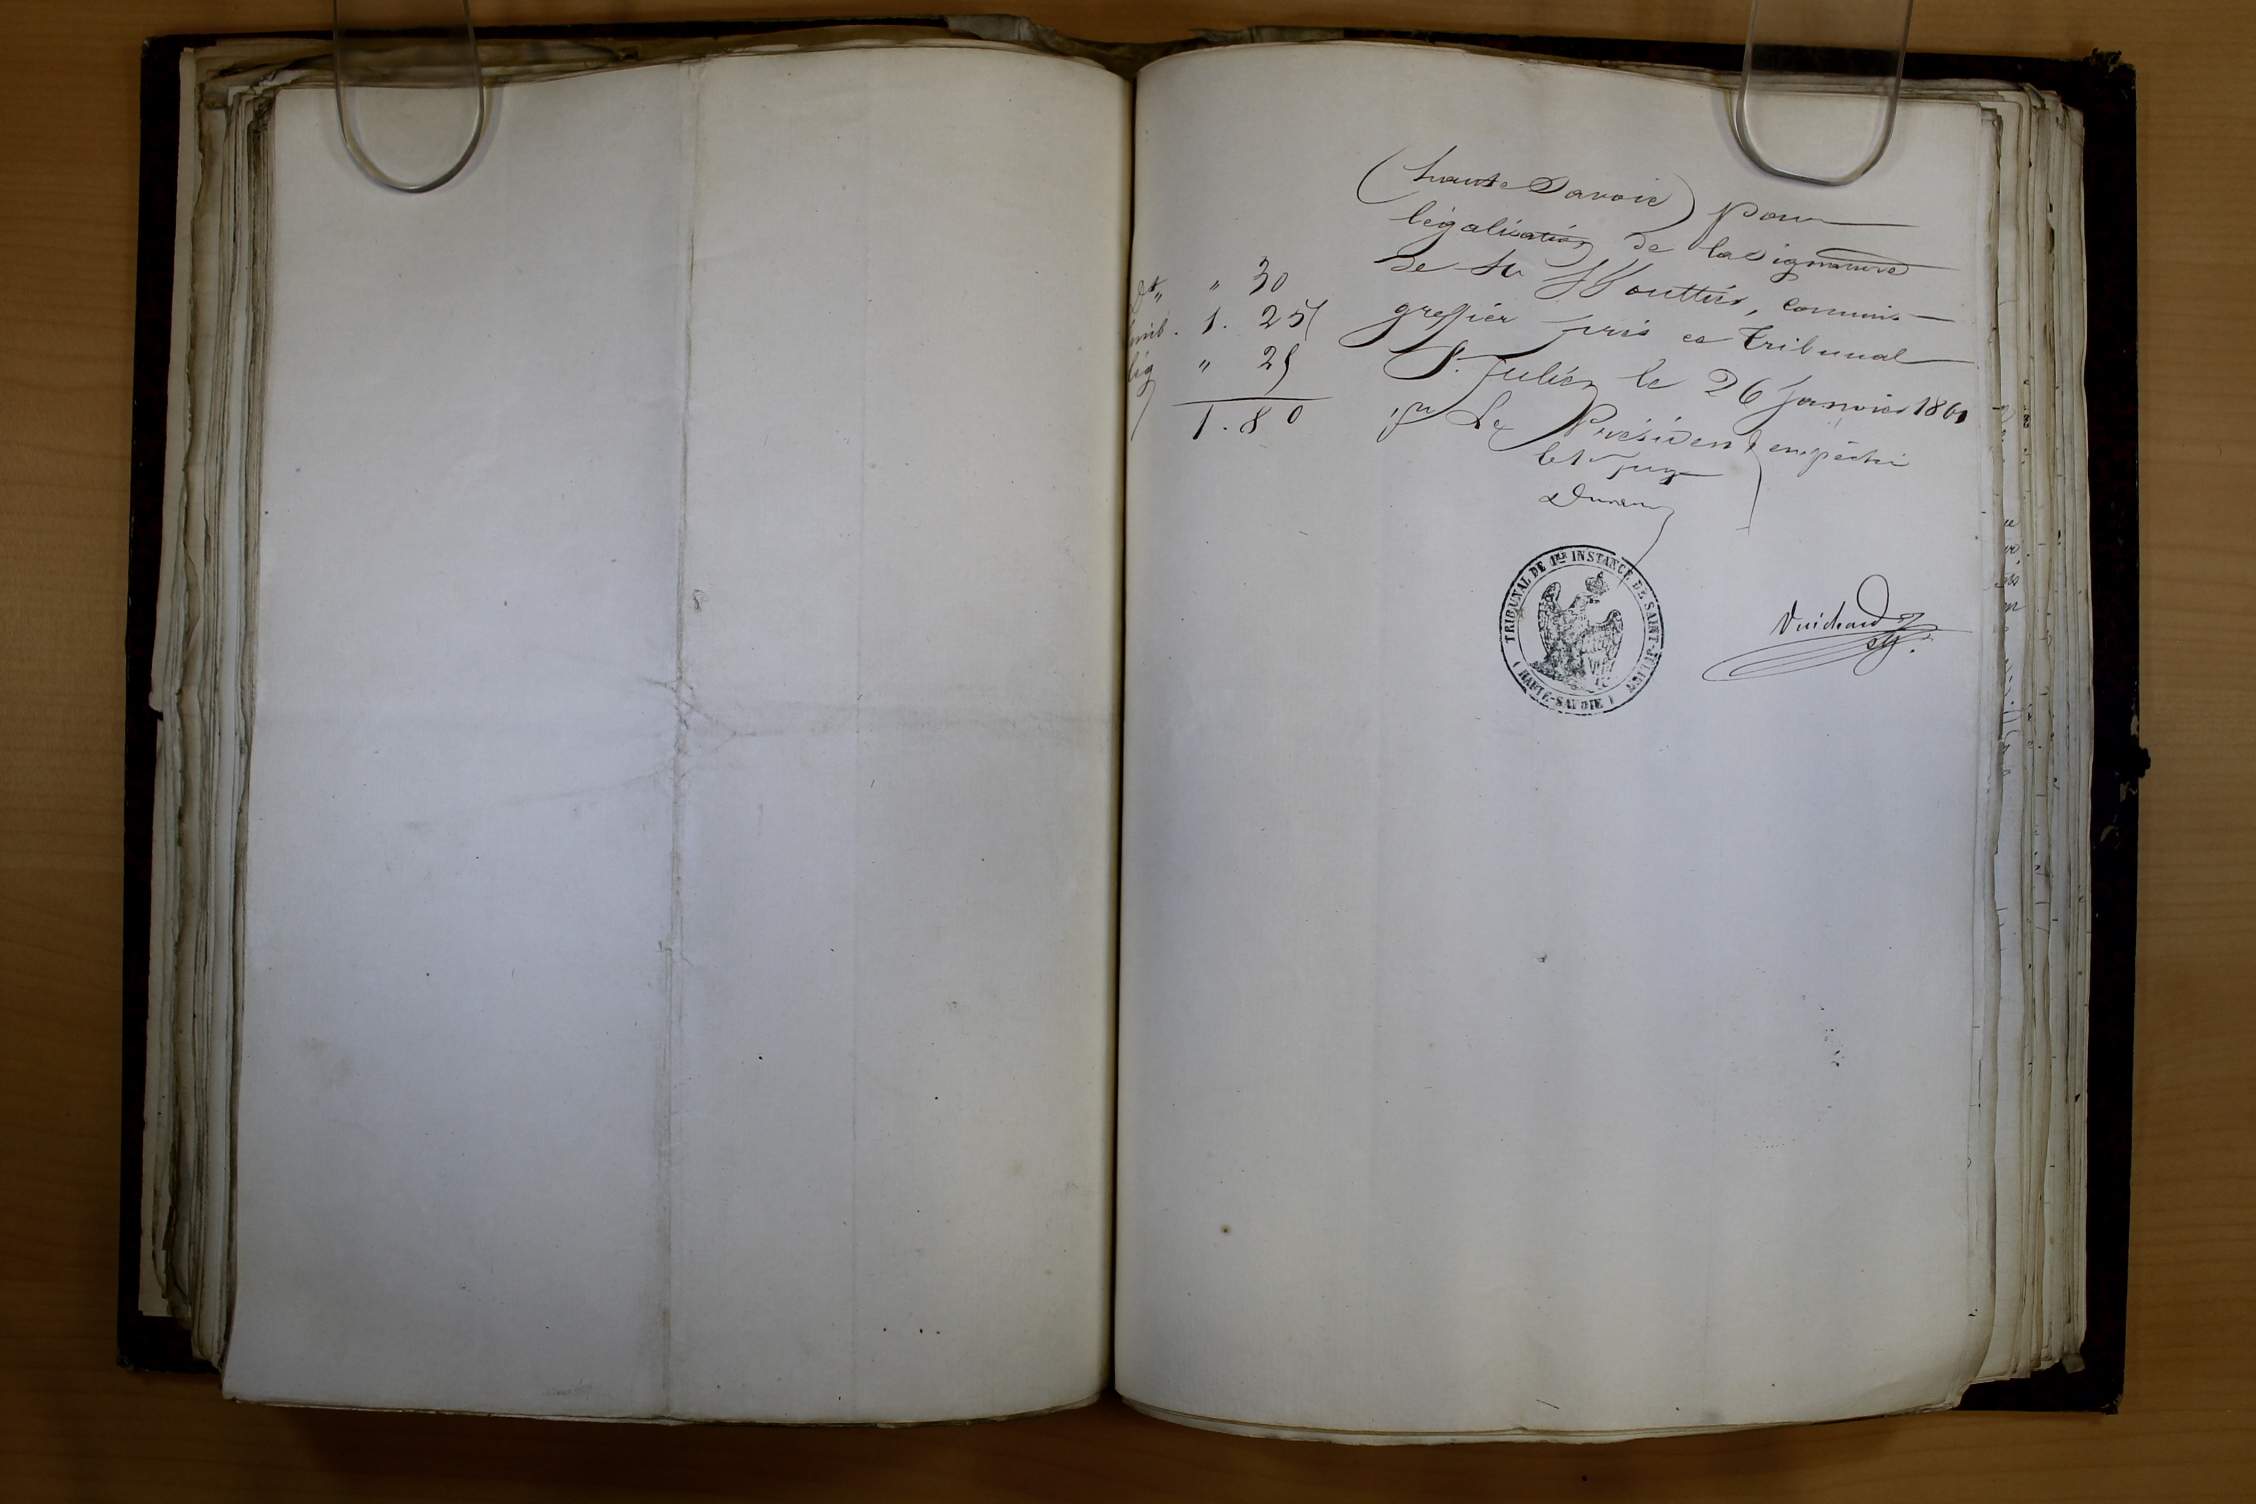 (haute Savoie) pour
légalisation de la signature
de Mr Mouthier, commis
greffier près ce Tribunal
St Julien le 26 Janvier 1861
pr Le Président empêché
le 1er juge
Dt " 30
timb. 1. 25
lég " 25
1. 80
TRIBUNAL DE 1RE INSTANCE DE SAINT-JULIEN
(HAUTE-SAVOIE)
Vuichard